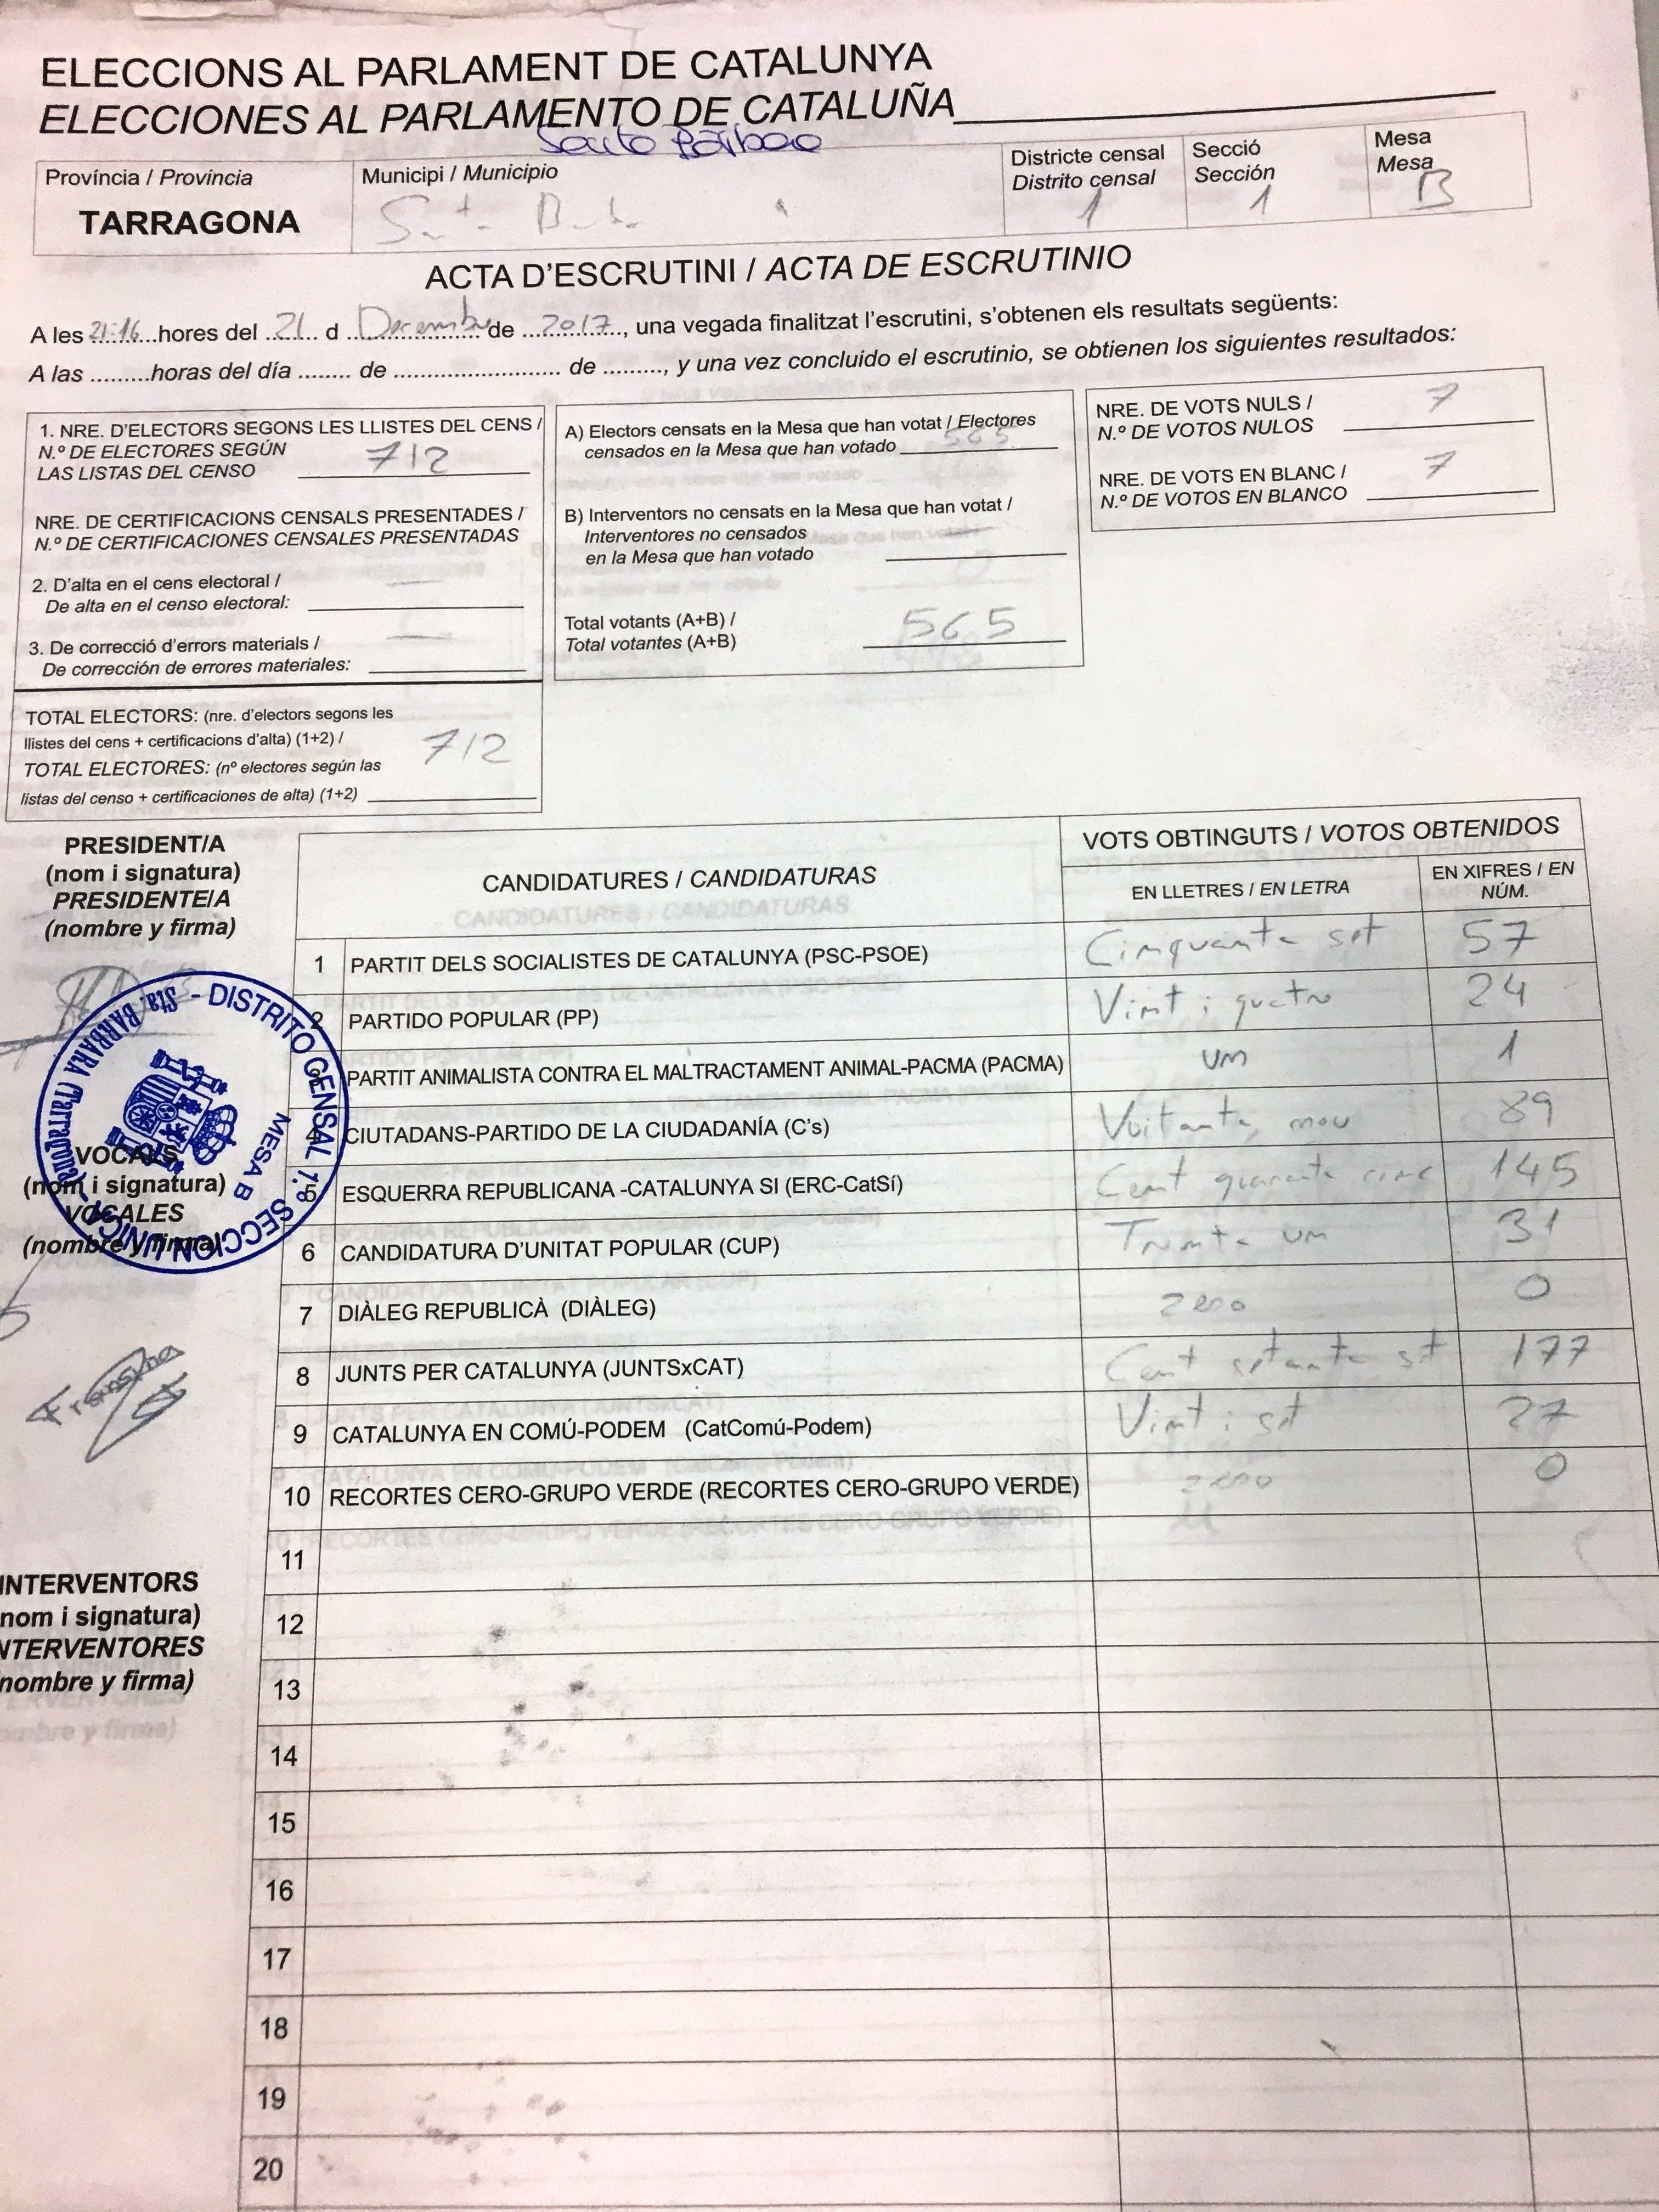 ELECCIONS AL PARLAMENT DE CATALUNYA
ELECCIONES AL PARLAMENTO DE CATALUÑA
Província / Provincia
TARRAGONA
Municipi / Municipio
Districte censal
Distrito censal
1
Secció
Sección
1
Mesa
Mesa
B
ACTA D'ESCRUTINI / ACTA DE ESCRUTINIO
A les 21:16 hores del 21 d Desembre de 2017, una vegada finalitzat l'escrutini, s'obtenen els resultats següents:
A las .........horas del día ........ de ............................ de ........., y una vez concluido el escrutinio, se obtienen los siguientes resultados:
1. NRE. D'ELECTORS SEGONS LES LLISTES DEL CENS /
N.º DE ELECTORES SEGÚN
LAS LISTAS DEL CENSO 712
NRE. DE CERTIFICACIONS CENSALS PRESENTADES /
N.º DE CERTIFICACIONES CENSALES PRESENTADAS
2. D'alta en el cens electoral /
De alta en el censo electoral: —
3. De correcció d'errors materials /
De corrección de errores materiales: —
TOTAL ELECTORS: (nre. d'electors segons les
llistes del cens + certificacions d'alta) (1+2) /
TOTAL ELECTORES: (nº electores según las
listas del censo + certificaciones de alta) (1+2) 712
A) Electors censats en la Mesa que han votat / Electores
censados en la Mesa que han votado 565
B) Interventors no censats en la Mesa que han votat /
Interventores no censados
en la Mesa que han votado —
Total votants (A+B) /
Total votantes (A+B) 565
NRE. DE VOTS NULS /
N.º DE VOTOS NULOS 7
NRE. DE VOTS EN BLANC /
N.º DE VOTOS EN BLANCO 7
PRESIDENT/A
(nom i signatura)
PRESIDENTE/A
(nombre y firma)
Sta. BARBARA (Tarragona) - DISTRITO CENSAL 1.º SECCION UNICA
MESA B
VOCALS
(nom i signatura)
VOCALES
(nombre y firma)
INTERVENTORS
nom i signatura)
NTERVENTORES
nombre y firma)
CANDIDATURES / CANDIDATURAS
VOTS OBTINGUTS / VOTOS OBTENIDOS
EN LLETRES / EN LETRA
EN XIFRES / EN
NÚM.
1 PARTIT DELS SOCIALISTES DE CATALUNYA (PSC-PSOE) Cinquanta set 57
2 PARTIDO POPULAR (PP) Vint i quatre 24
3 PARTIT ANIMALISTA CONTRA EL MALTRACTAMENT ANIMAL-PACMA (PACMA) un 1
4 CIUTADANS-PARTIDO DE LA CIUDADANÍA (C's) Vuitanta nou 89
5 ESQUERRA REPUBLICANA -CATALUNYA SI (ERC-CatSí) Cent quaranta cinc 145
6 CANDIDATURA D'UNITAT POPULAR (CUP) Trenta un 31
7 DIÀLEG REPUBLICÀ (DIÀLEG) zero 0
8 JUNTS PER CATALUNYA (JUNTSxCAT) Cent setanta set 177
9 CATALUNYA EN COMÚ-PODEM (CatComú-Podem) Vint i set 27
10 RECORTES CERO-GRUPO VERDE (RECORTES CERO-GRUPO VERDE) zero 0
11
12
13
14
15
16
17
18
19
20